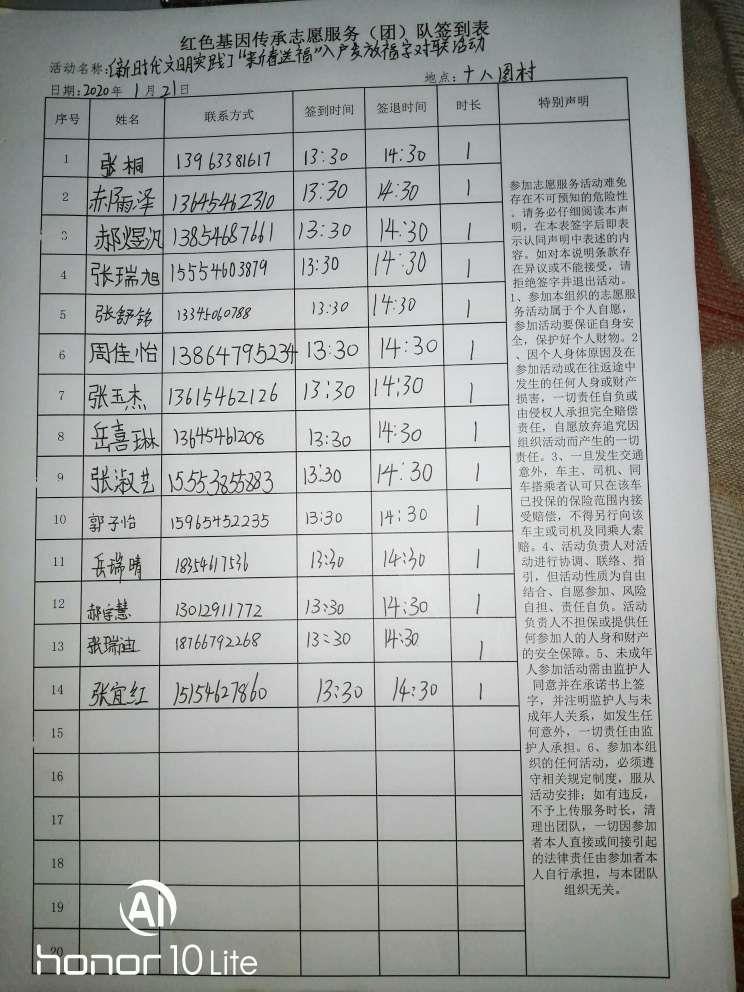 红色基因传承志愿服务（团）队签到表
活动名称:[新时代文明实践]"新春送福"入户发放福字对联活动
日期:2020年 1月 21日 地点: 十八图村
序号 姓名 联系方式 签到时间 签退时间 时长 特别声明
1 张桐 13963381617 13:30 14:30 1
2 郝雨泽 13645462310 13:30 14:30 1
3 郝煜汎 13854687661 13:30 14:30 1
4 张瑞旭 15554603879 13:30 14:30 1
5 张舒铭 13345060788 13:30 14:30 1
6 周佳怡 13864795234 13:30 14:30 1
7 张玉杰 13615462126 13:30 14:30 1
8 岳喜琳 13645461208 13:30 14:30 1
9 张淑艺 15553855883 13:30 14:30 1
10 郭子怡 15965452235 13:30 14:30 1
11 岳瑞晴 18354617536 13:30 14:30 1
12 郝宇慧 13012911772 13:30 14:30 1
13 张瑞迪 18766792268 13:30 14:30 1
14 张宜红 15154627860 13:30 14:30 1
15
16
17
18
19
20
参加志愿服务活动难免
存在不可预知的危险性
。请务必仔细阅读本声
明，在本表签字后即表
示认同声明中表述的内
容。如对本说明条款存
在异议或不能接受，请
拒绝签字并退出活动。
1、参加本组织的志愿服
务活动属于个人自愿，
参加活动要保证自身安
全，保护好个人财物。2
、因个人身体原因及在
参加活动或在往返途中
发生的任何人身或财产
损害，一切责任自负或
由侵权人承担完全赔偿
责任，自愿放弃追究因
组织活动而产生的一切
责任。3、一旦发生交通
意外，车主、司机、同
车搭乘者认可只在该车
已投保的保险范围内接
受赔偿，不得另行向该
车主或司机及同乘人索
赔。4、活动负责人对活
动进行协调、联络、指
引，但活动性质为自由
结合、自愿参加、风险
自担、责任自负。活动
负责人不担保或提供任
何参加人的人身和财产
的安全保障。5、未成年
人参加活动需由监护人
同意并在承诺书上签
字，并注明监护人与未
成年人关系，如发生任
何意外，一切责任由监
护人承担。6、参加本组
织的任何活动，必须遵
守相关规定制度，服从
活动安排；如有违反，
不予上传服务时长，清
理出团队，一切因参加
者本人直接或间接引起
的法律责任由参加者本
人自行承担，与本团队
组织无关。
AI
honor 10 Lite